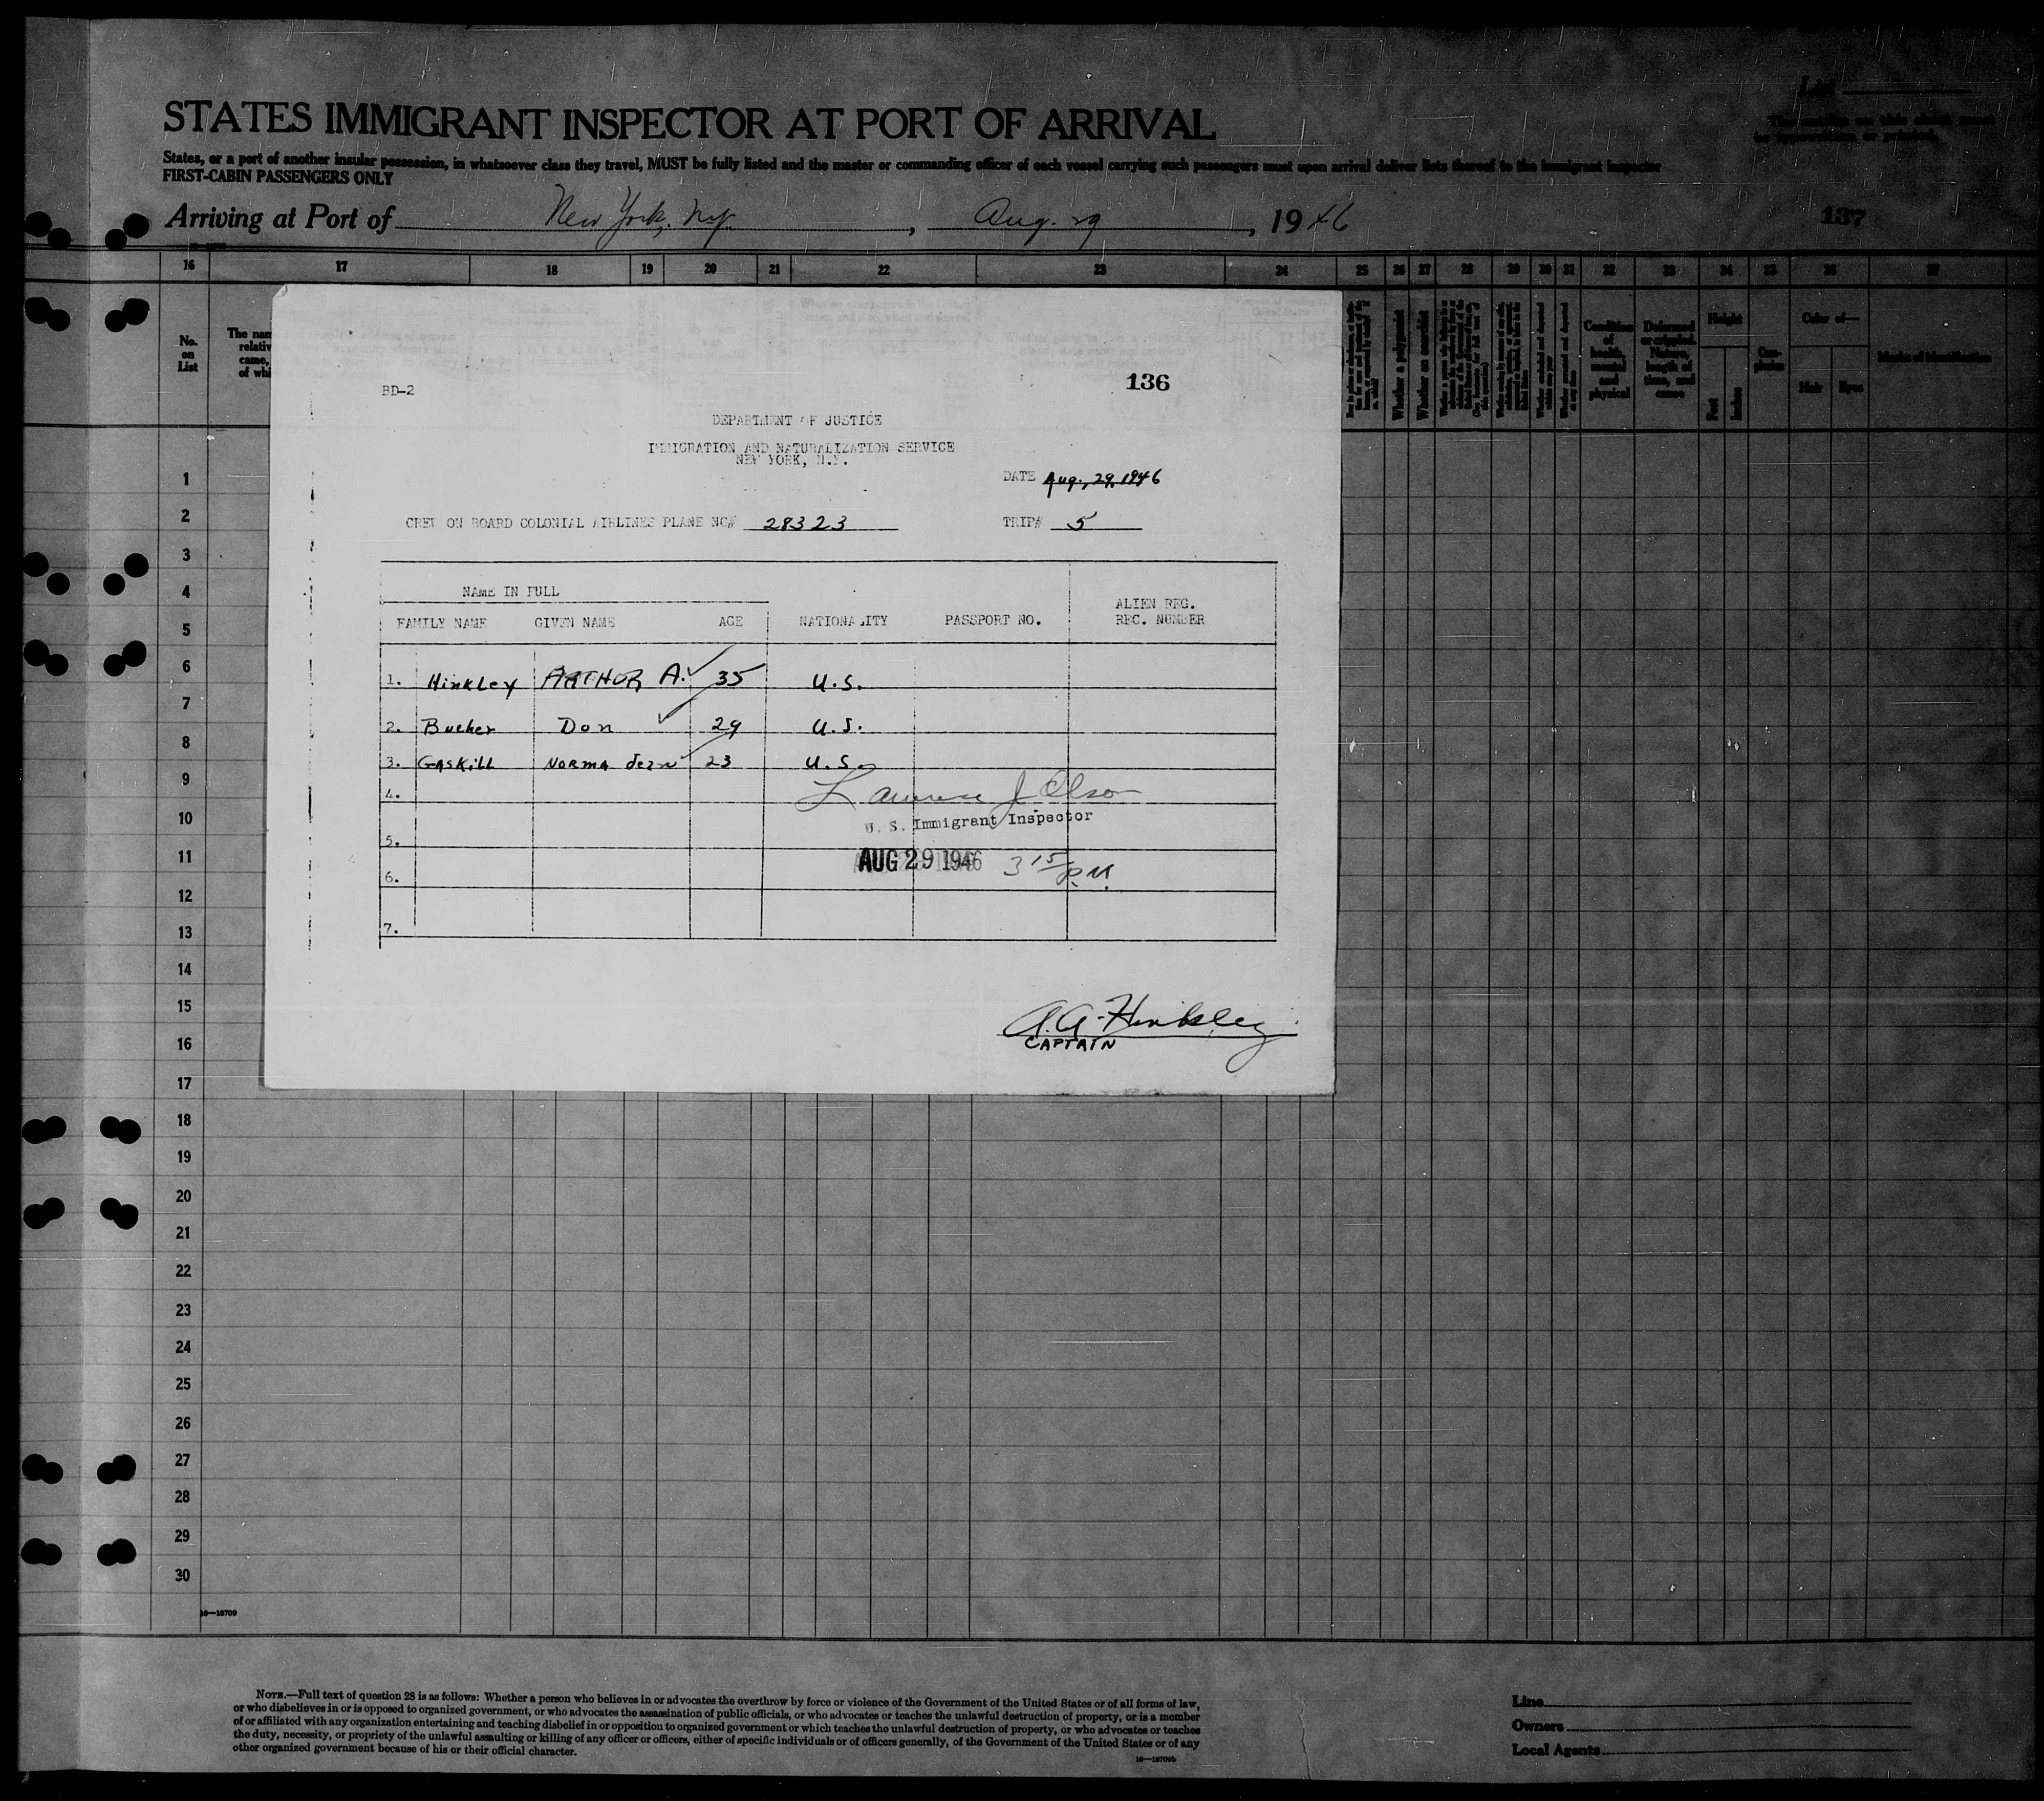 STATES IMMIGRANT INSPECTOR AT PORT OF ARRIVAL
List
States, or a port of another insular possession, in whatsoever class they travel, MUST be fully listed and the master or commanding officer of each vessel carrying such passengers must upon arrival deliver lists thereof to the immigrant inspector
FIRST-CABIN PASSENGERS ONLY
Arriving at Port of New York, N.Y. , Aug. 29 , 1946 137
16 17 18 19 20 21 22 23 24 25 26 27 28 29 30 31 32 33 34 35 36 37
No. on List
The nam
relativ
came,
of whi
Whether a polygamist
Whether an anarchist
Condition of health, mental and physical
Height
Feet Inches
Color of—
Hair Eyes
Marks of identification
BD-2
136
DEPARTMENT OF JUSTICE
IMMIGRATION AND NATURALIZATION SERVICE
NEW YORK, N.Y.
DATE Aug. 29, 1946
CREW ON BOARD COLONIAL AIRLINES PLANE NO# 28323 TRIP# 5
NAME IN FULL
FAMILY NAME GIVEN NAME AGE NATIONALITY PASSPORT NO. ALIEN REG. REC. NUMBER
1. Hinkley ARTHUR A. 35 U.S.
2. Bucher Don 29 U.S.
3. GASKILL NORMA Jean 23 U.S.
4. Lawrence J Olson
U. S. Immigrant Inspector
5.
AUG 29 1946 3 15 P.M.
6.
7.
A.A. Hinkley
CAPTAIN
1
2
3
4
5
6
7
8
9
10
11
12
13
14
15
16
17
18
19
20
21
22
23
24
25
26
27
28
29
30
16—18709
NOTE.—Full text of question 28 is as follows: Whether a person who believes in or advocates the overthrow by force or violence of the Government of the United States or of all forms of law,
or who disbelieves in or is opposed to organized government, or who advocates the assassination of public officials, or who advocates or teaches the unlawful destruction of property, or is a member
of or affiliated with any organization entertaining and teaching disbelief in or opposition to organized government or which teaches the unlawful destruction of property, or who advocates or teaches
the duty, necessity, or propriety of the unlawful assaulting or killing of any officer or officers, either of specific individuals or of officers generally, of the Government of the United States or of any
other organized government because of his or their official character.
16—18709b
Line
Owners
Local Agents